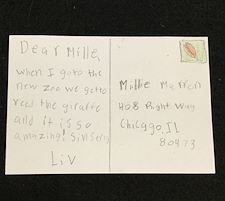 Dear Mille,
when I goto the
new zoo we getto
feed the giraffe
and it is so
amazing!
Liv
Millie Marron
408 Right Way
Chicggo, Il
80473